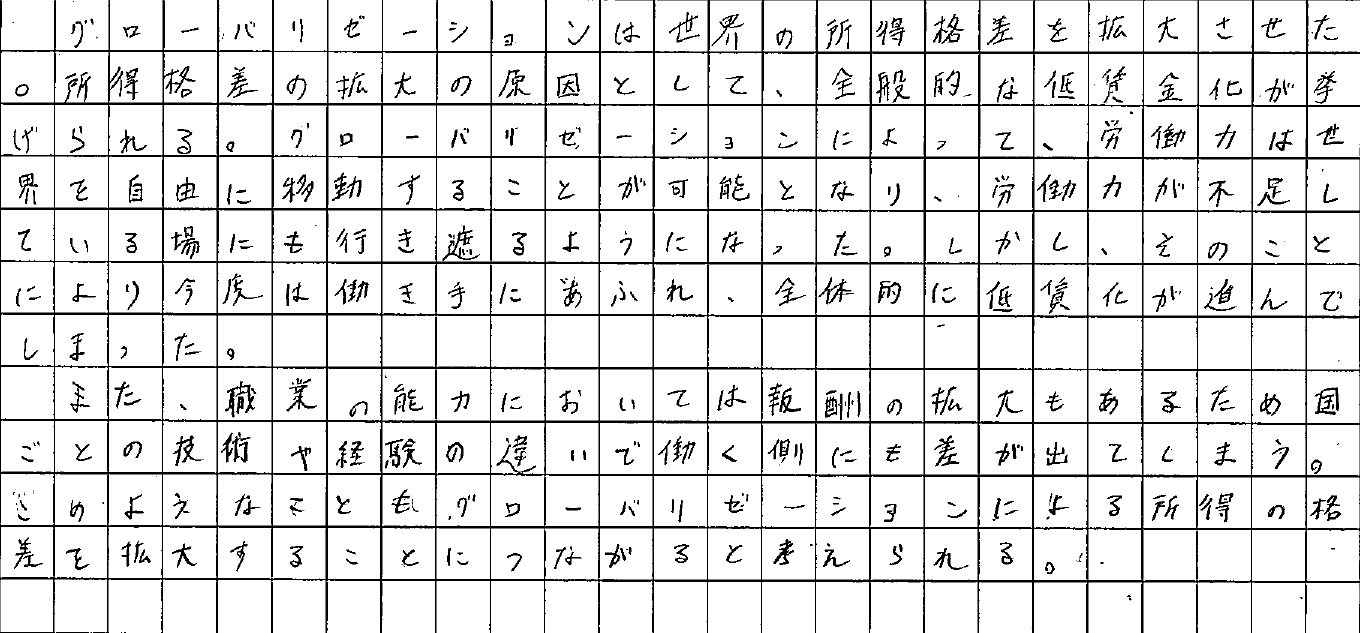 グローバリゼーションは世界の所得格差を拡大させた
。所得格差の拡大の原因として、全般的な低賃金化が挙
げられる。グローバリゼーションによって、労働力は世
界を自由に移動することが可能となり、労働力が不足し
ている場にも行き遮るようになった。しかし、そのこと
により今度は働き手にあふれ、全体的に低賃化が進んで
しまった。
また、職業の能力においては報酬の拡大もあるため国
ごとの技術や経験の違いで働く側にも差が出てしまう。
このようなこともグローバリゼーションによる所得の格
差を拡大することにつながると考えられる。